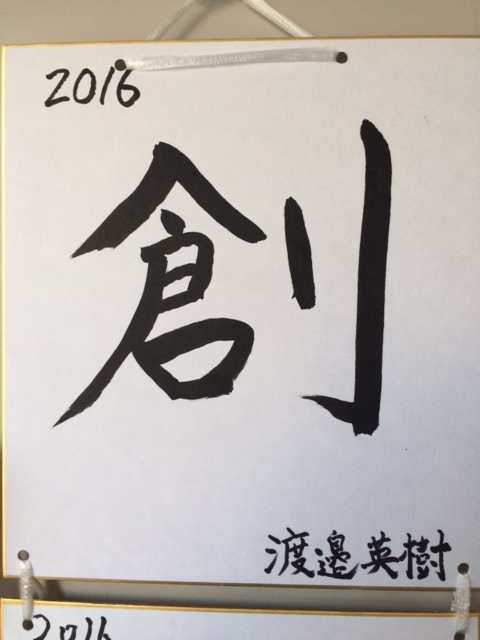 2016
創
渡邉英樹
2016